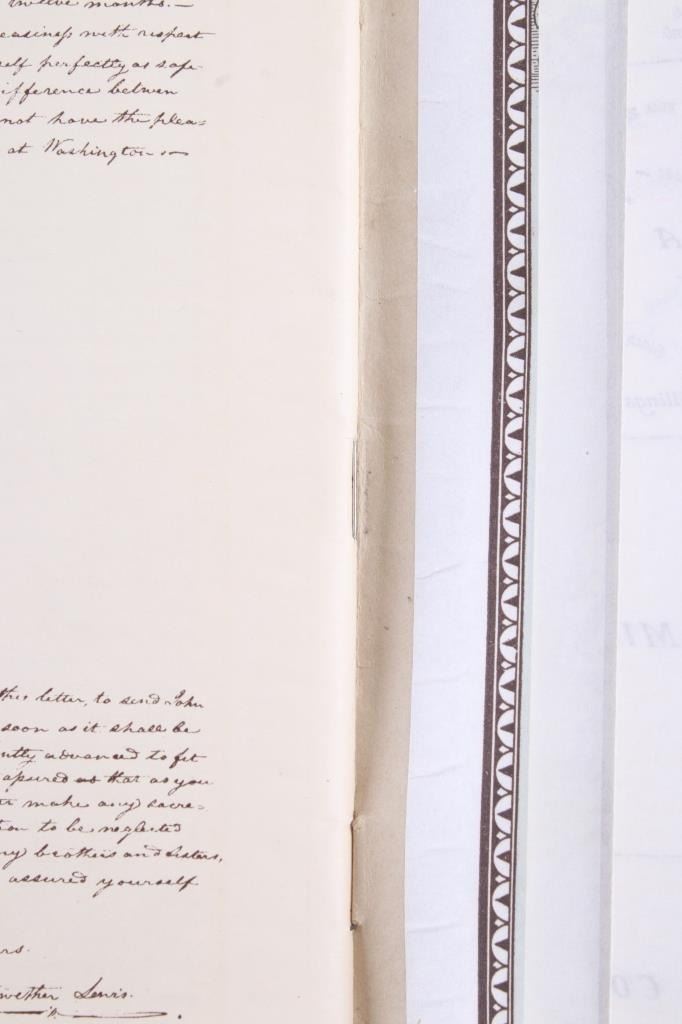 twelve months. —
easings with respect
self perfectly as safe
ifference between
not have the plea=
at Washington —
this letter, to send John
soon as it shall be
ntly advanced to fit
assured as that as you
make any sacre=
ion to be neglected
my brothers and Sisters,
assured yourself
rs.
wether Lewis.
A
llings
MI
CO